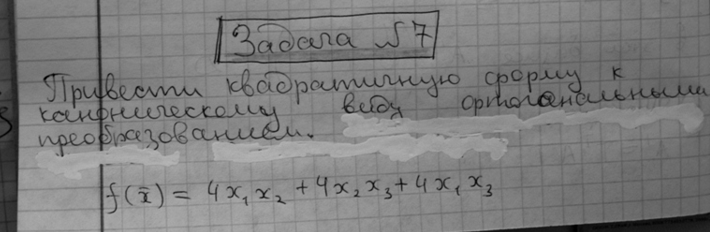 Задача №7
Привести квадратичную форму к
каноническому виду ортогональным
преобразованием.
f(x̄) = 4x₁x₂ + 4x₂x₃ + 4x₁x₃